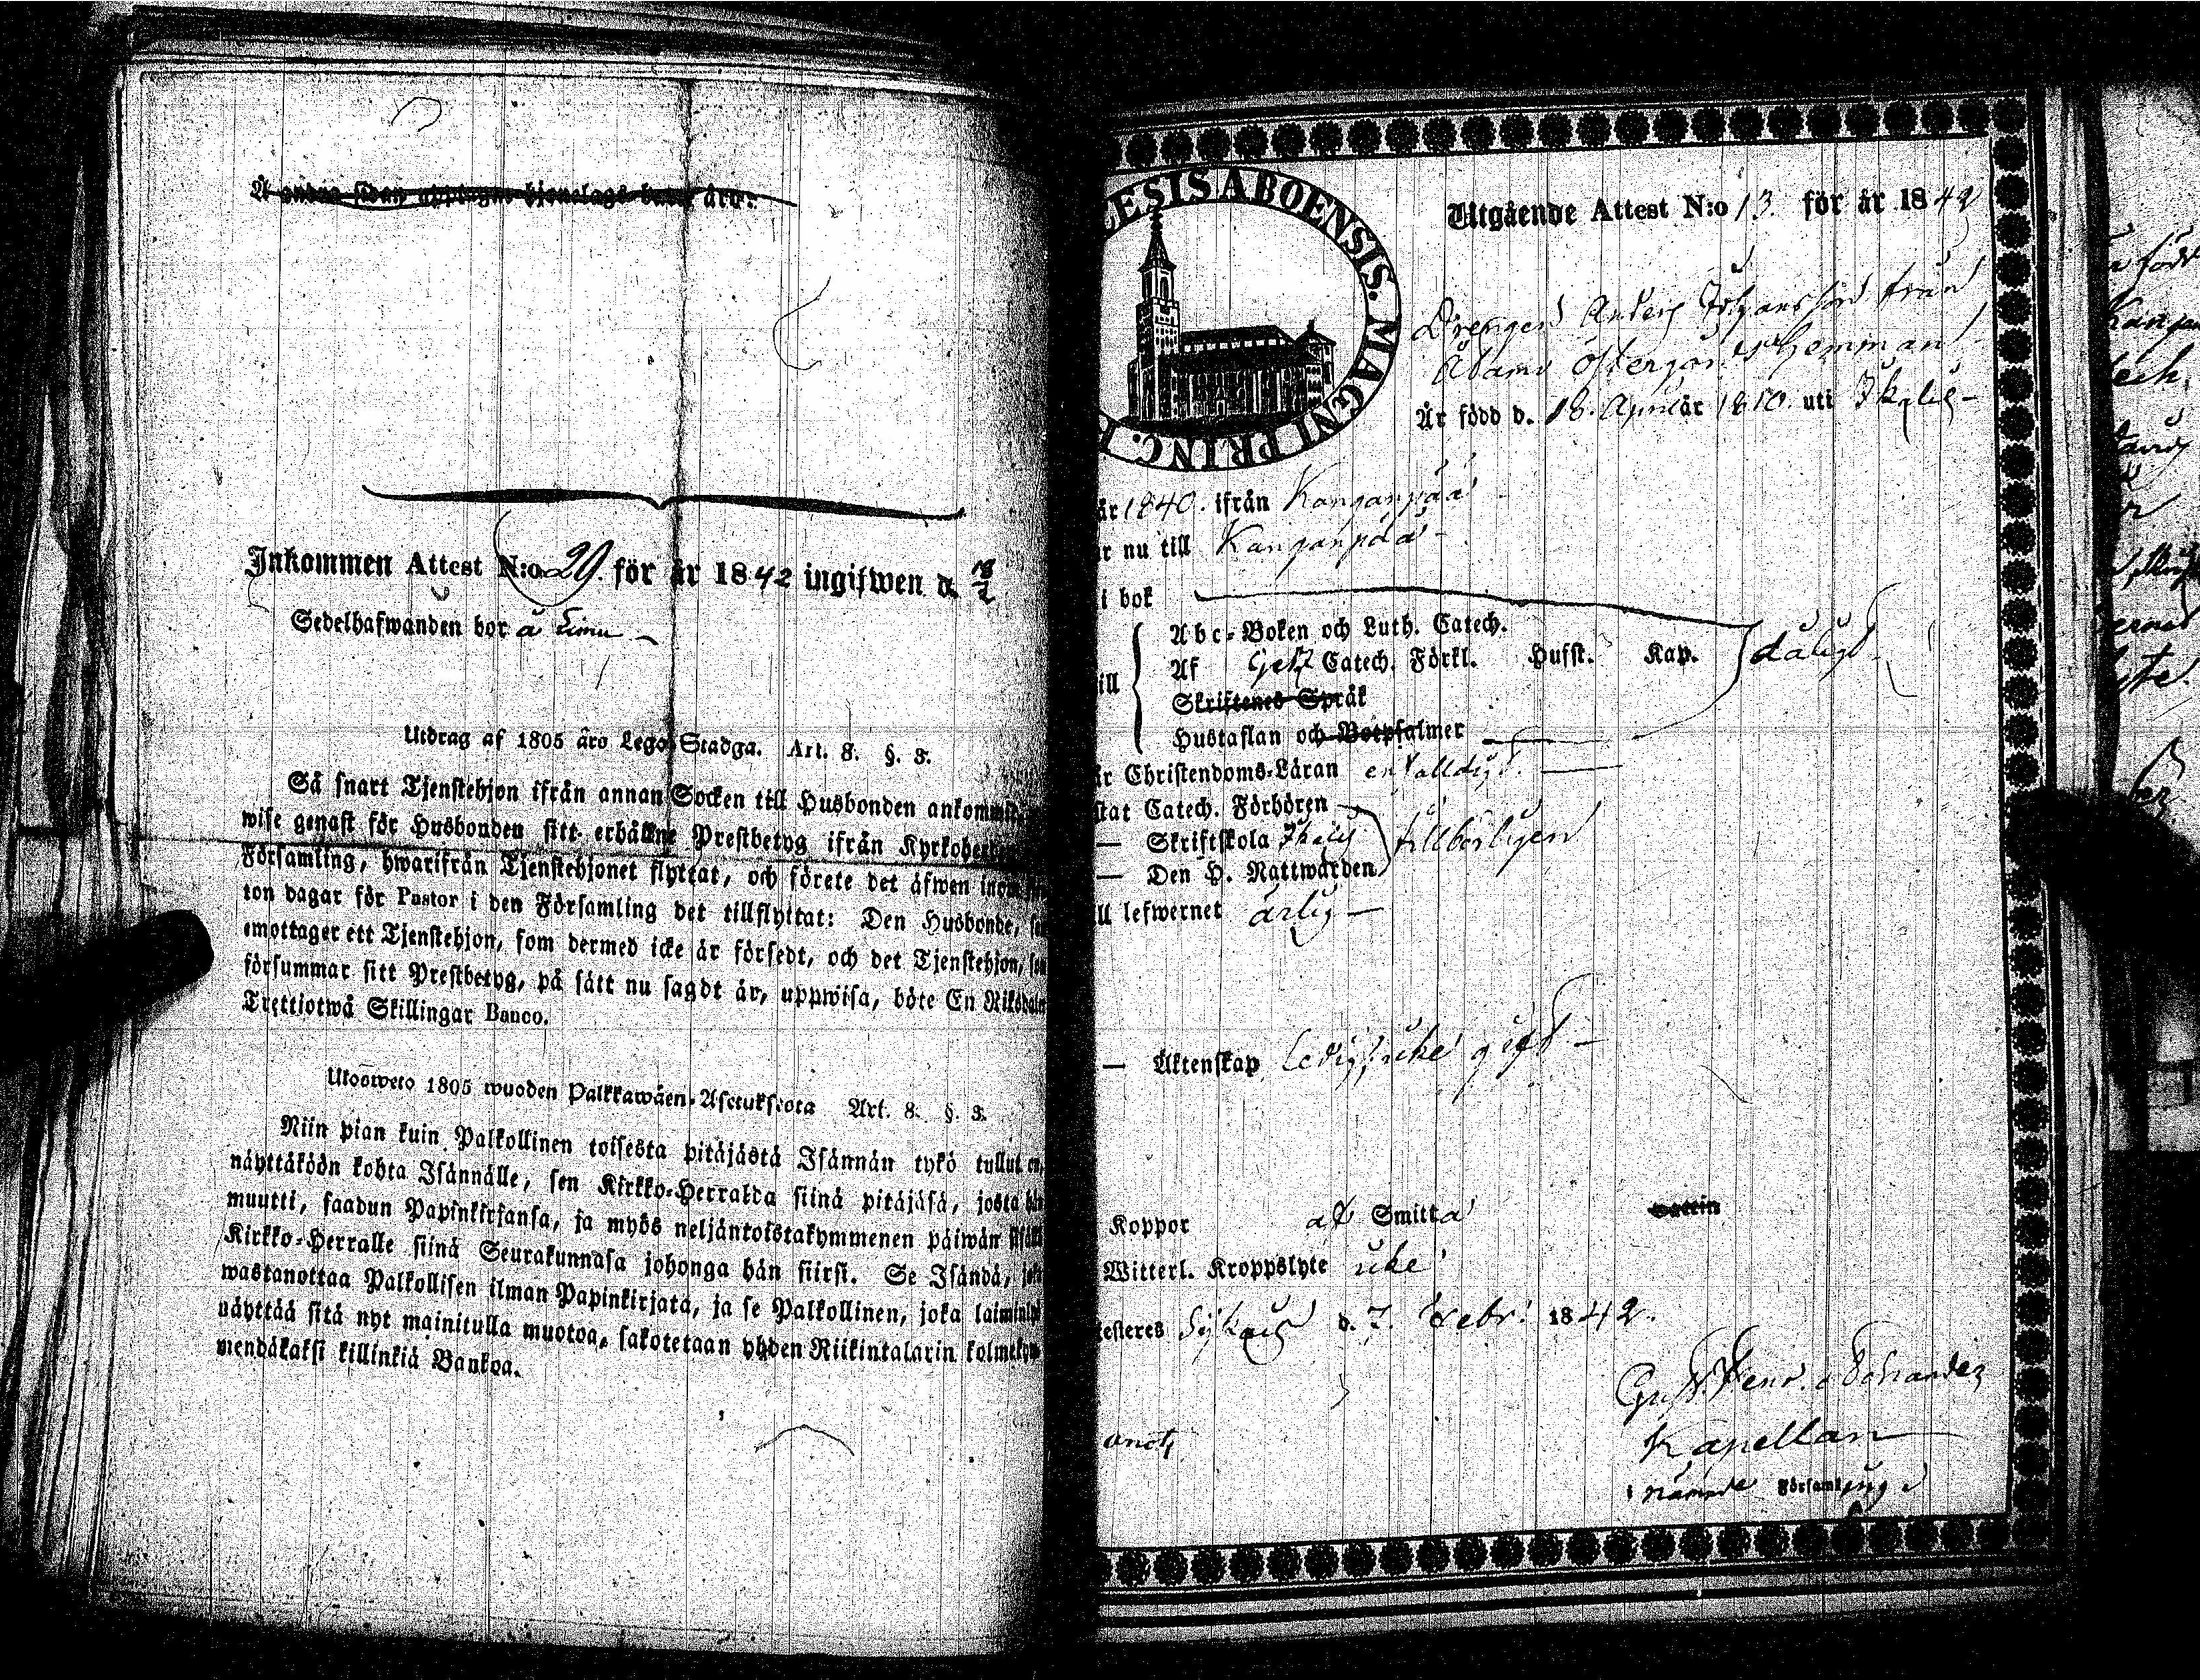 Å andra sidan upptagne hjonelags barn äro:
Inkommen Attest N:o 29. för år 1842 ingifwen d. 18/2
Sedelhafwanden bor å
Utdrag af 1805 åro Lego-Stadga. Art. 8. §. 3.
Så snart Tjenstehjon ifrån annan Socken till Husbonden ankommit,
wise genast för Husbonden sitt erhållne Prestbetyg ifrån Kyrkoher
Församling, hwarifrån Tjenstehjonet flyttat, och förete det äfwen inom
ton dagar för Pastor i den Församling det tillflyttat: Den Husbonde, so
emottager ett Tjenstehjon, som dermed icke är försedt, och det Tjenstehjon, so
försummar sitt Prestbetyg, på sätt nu sagdt är, uppwisa, böte En Riksdaler
Trettiotwå Skillingar Banco.
Ulosweto 1805 wuoden Palkkawäen-Asetuksesta Art. 8. §. 3.
Niin pian kuin Palkollinen toisesta pitäjästä Isännän tykö tullut on,
näyttäköön kohta Isännälle, sen Kirkko-Herralda siinä pitäjäsä, josta hän
muutti, saadun Papinkirjansa, ja myös neljäntoistakymmenen päiwän sisällä
Kirkko-Herralle siinä Seurakunnasa johonga hän siirsi. Se Isändä, jok
wastanottaa Palkollisen ilman Papinkirjata, ja se Palkollinen, joka laiminlyö
näyttää sitä nyt mainitulla muotoa, sakotetaan yhden Riikintalarin kolmekym
mendäkaksi killinkiä Bankoa.
LESIS ABOENSIS. MAGNI PRINC. F
Utgående Attest N:o 13. för år 1842
Drengen Anders Johansson från
Adami Östergårds Hemman
Är född d. 18. April år 1810. uti Ikalis
år 1840. ifrån Kanganpää
r nu till Kanganpää
i bok
Abc-Boken och Luth. Catech.
ill Af Catech. Förkl. Hufst. Kap. dåligt
Skriftenes Språk
Hustaflan och Botpsalmer
är Christendoms-Läran enfalldigt.
stat Catech. Förhören
— Skriftskola Ikalis tillbörligen
— Den H. Nattwarden
ll lefwernet ärlig
— Äktenskap ledig, icke gift
Koppor af Smitta waccin
Witterl. Kroppslyte icke
testeres d. 7. Febr. 1842.
Gust. Henr.
Kapellan
i nämnde Församling